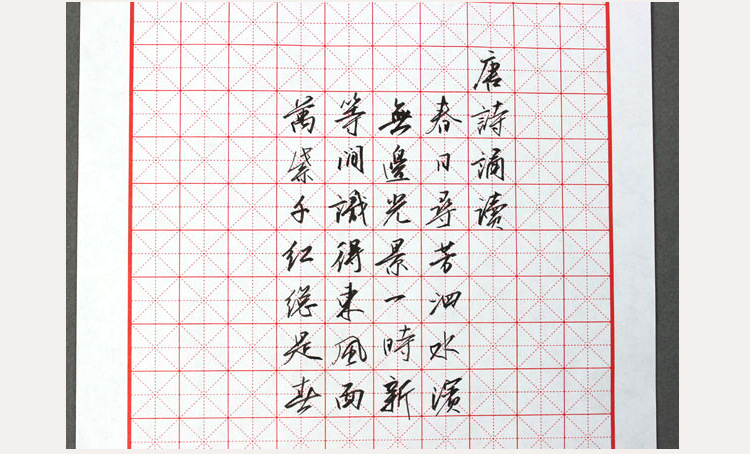 唐詩誦读
春日尋芳泗水濱
無邊光景一時新
等閒識得東風面
萬紫千红總是春